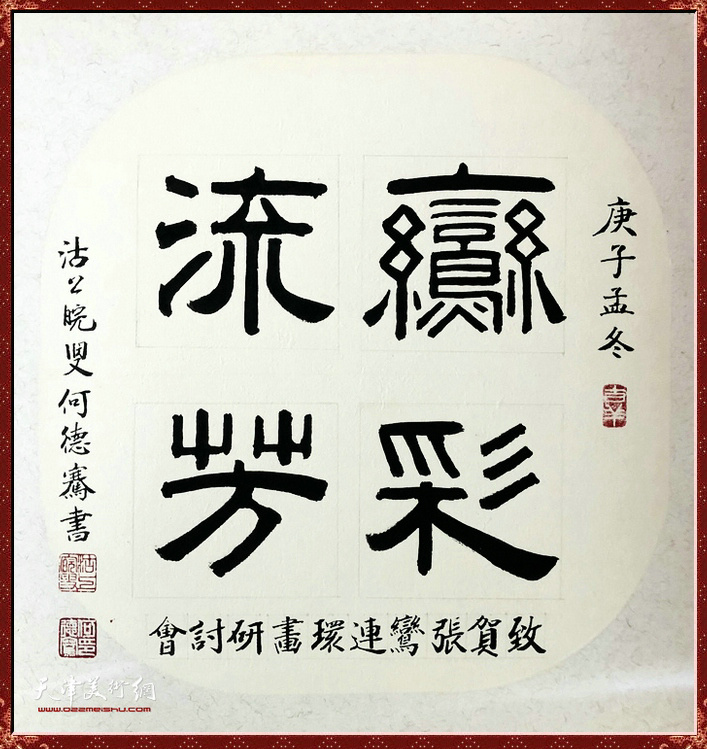 庚子孟冬
吉羊
鸞彩
流芳
致賀張鸞連環畫研討會
沽上皖叟何德騫書
天津美術網
www.022meishu.com